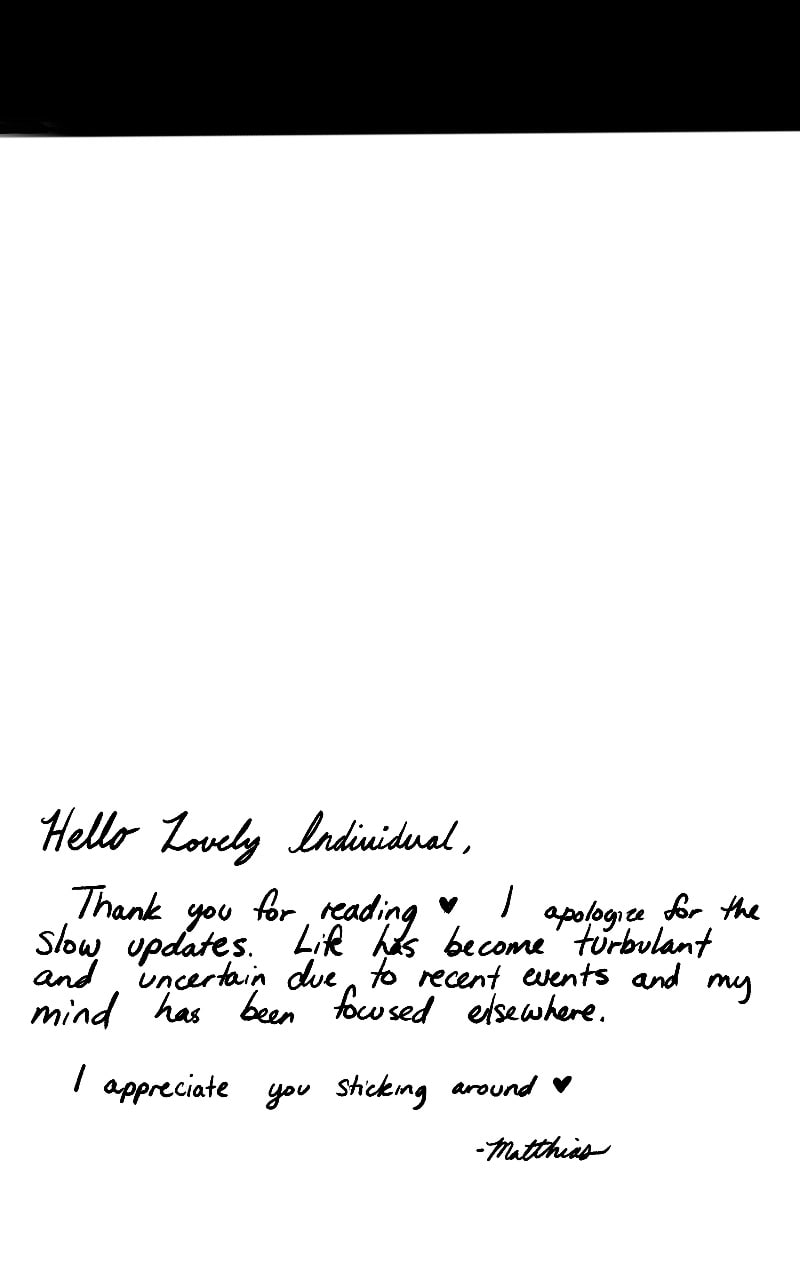 Hello Lovely Individual,
Thank you for reading ♥ I apologize for the
slow updates. Life has become turbulant
and uncertain due to recent events and my
mind has been focused elsewhere.
I appreciate you sticking around ♥
-Matthias